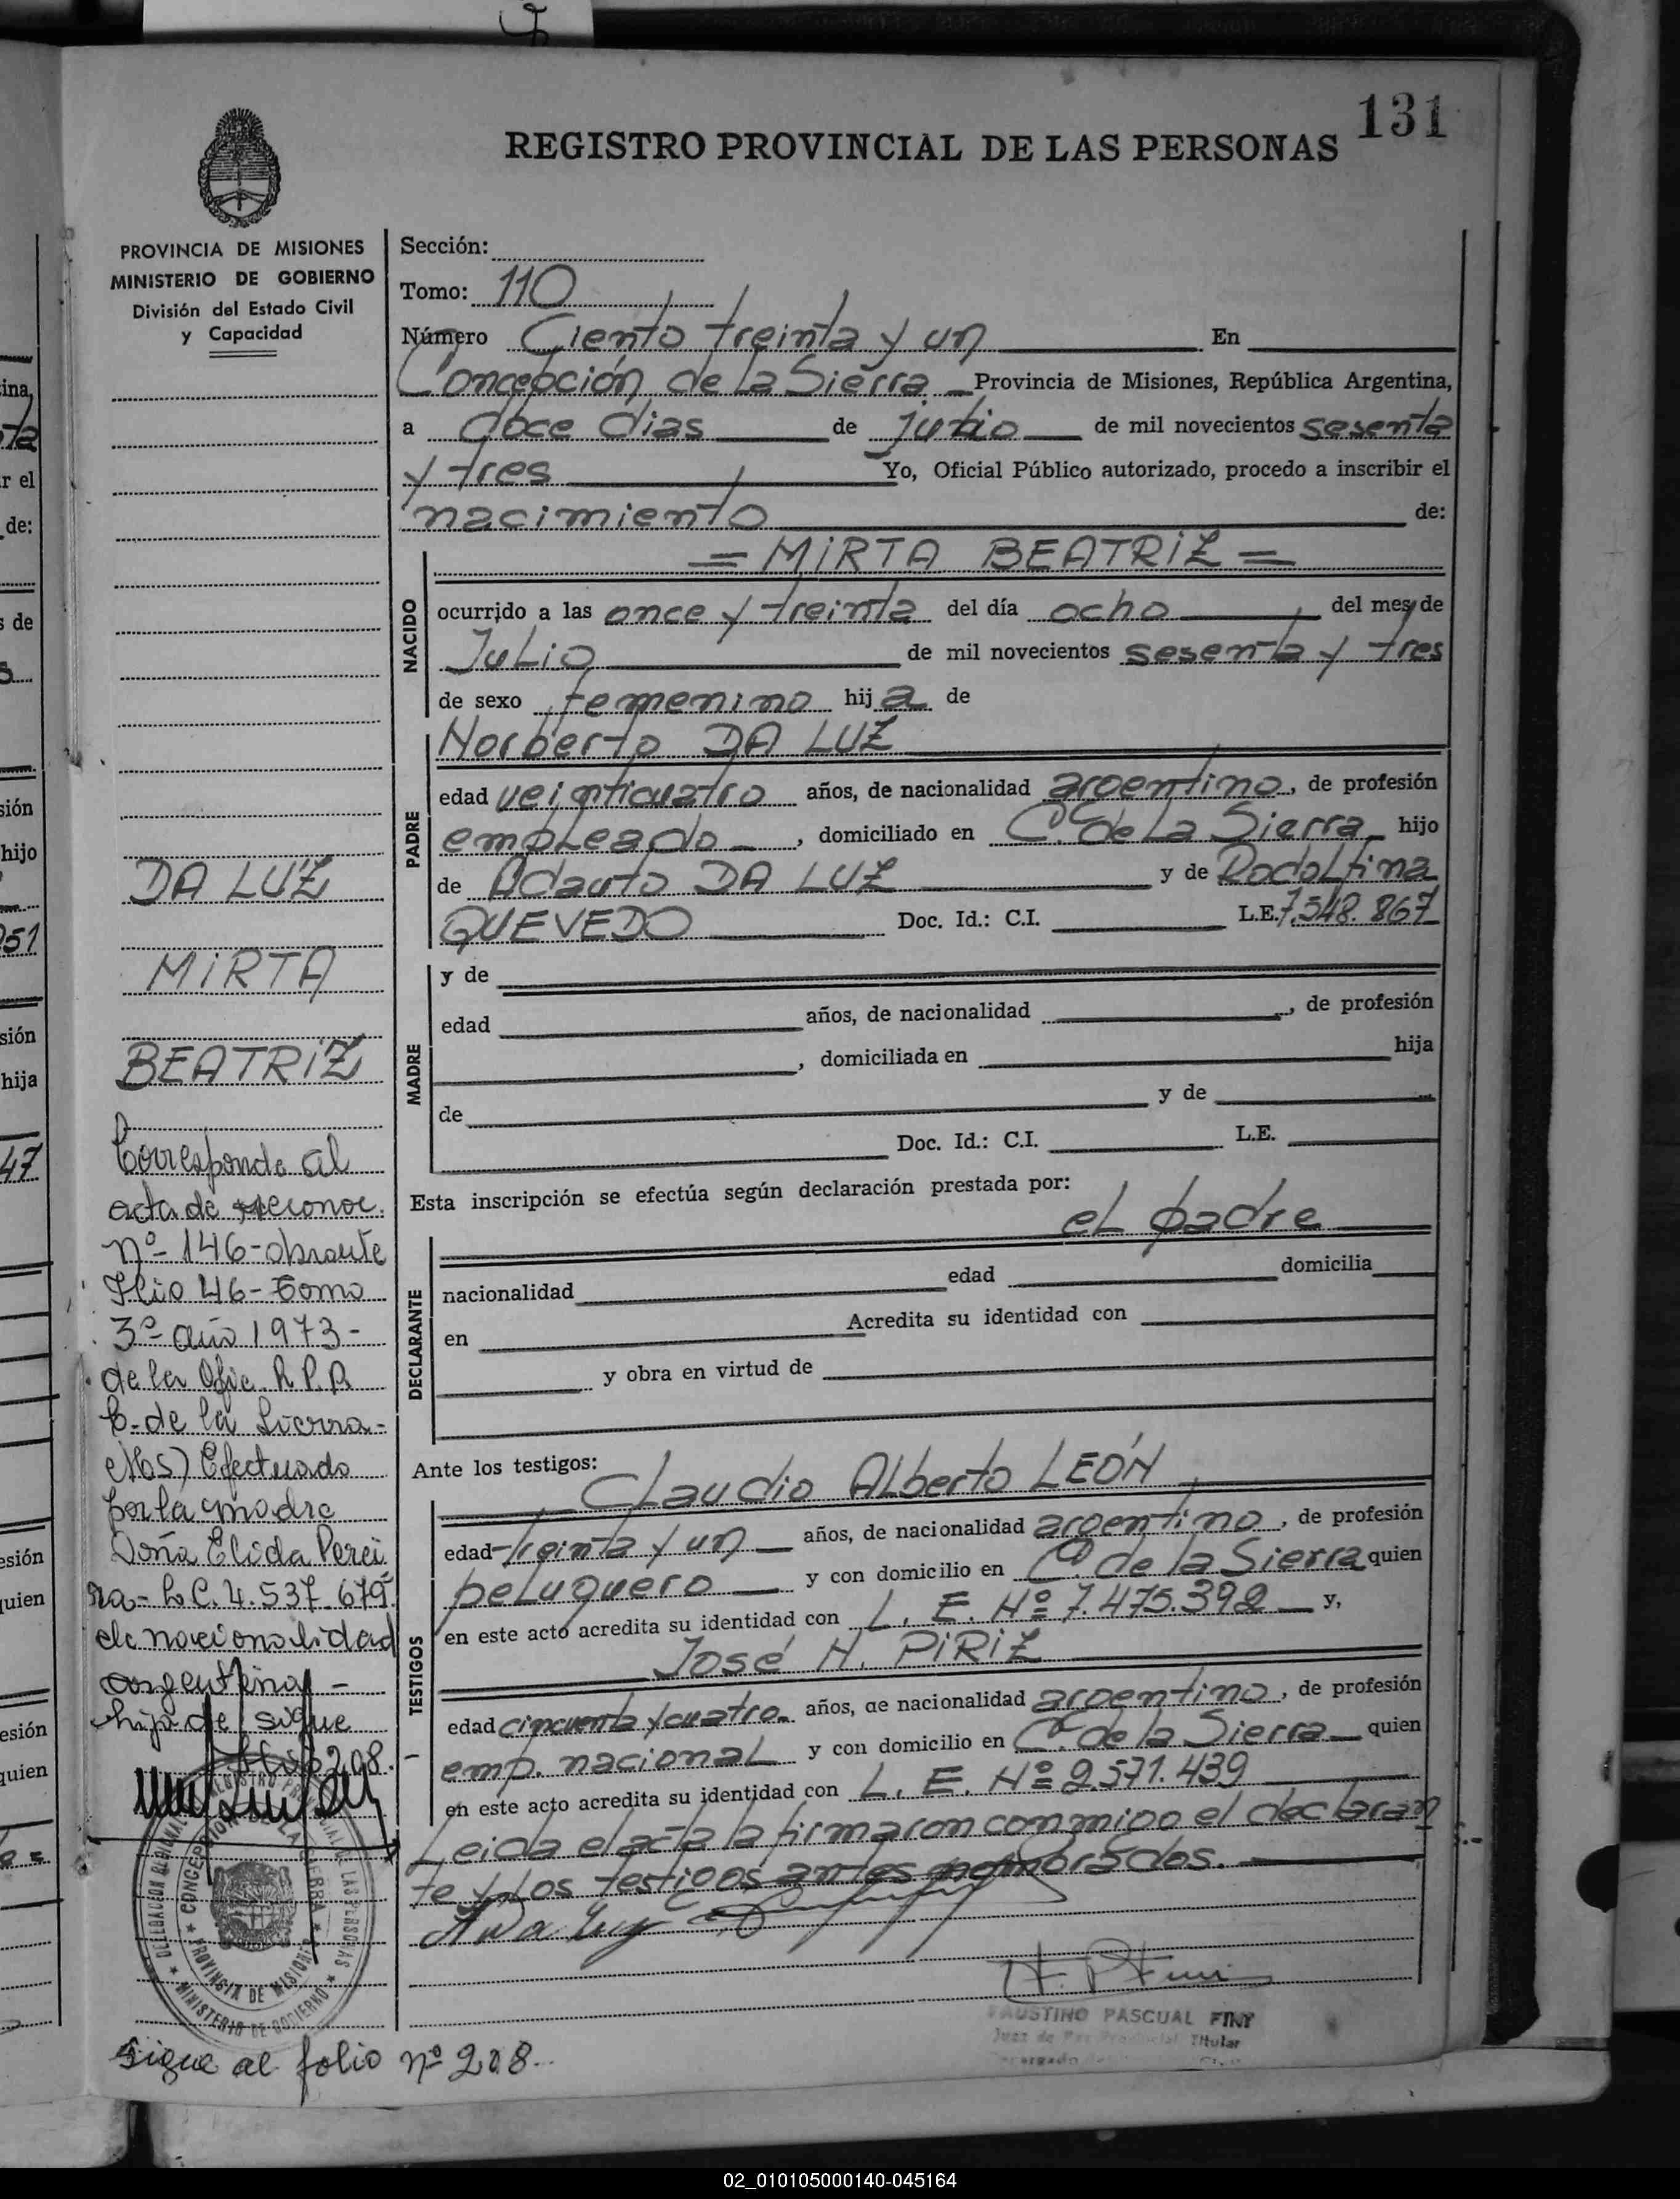 131
REGISTRO PROVINCIAL DE LAS PERSONAS
PROVINCIA DE MISIONES
MINISTERIO DE GOBIERNO
División del Estado Civil
y Capacidad
DA LUZ
MiRTA
BEATRiZ
Corresponde al
acta de reconoc.
nº- 146- obrante
Flio 46- Tomo
3º- año 1973-
de la Ofic. R.P.P.
C. de la Sierra-
Mbs) Efectuado
por la madre
Doña Elida Perei
ra- L.C. 4.537.679.
de nacionalidad
argentina -
hija de sigue
folio 208.
DELEGACION REGIONAL REGISTRO PROVINCIAL LAS PERSONAS
CONCEPCION DE LA SIERRA
PROVINCIA DE MISIONES
MINISTERIO DE GOBIERNO
Sigue al folio nº 208..
Sección:
Tomo: 110
Número Ciento treinta y un En
Concepción de la Sierra Provincia de Misiones, República Argentina,
a doce dias de julio de mil novecientos sesenta
y tres Yo, Oficial Público autorizado, procedo a inscribir el
nacimiento de:
= MiRTA BEATRiZ =
NACIDO
ocurrido a las once y treinta del día ocho del mes de
Julio de mil novecientos sesenta y tres
de sexo femenino hij a de
Norberto DA LUZ
PADRE
edad veinticuatro años, de nacionalidad argentino, de profesión
empleado, domiciliado en Cc. de la Sierra hijo
de Adauto DA LUZ y de Rodolfina
QUEVEDO Doc. Id.: C.I. L.E. 7.548.867
MADRE
y de
edad años, de nacionalidad , de profesión
, domiciliada en hija
de y de
Doc. Id.: C.I. L.E.
Esta inscripción se efectúa según declaración prestada por:
el padre
DECLARANTE
nacionalidad edad domicilia
en Acredita su identidad con
y obra en virtud de
Ante los testigos:
Claudio Alberto LEÓN
TESTIGOS
edad treinta y un años, de nacionalidad argentino, de profesión
peluquero y con domicilio en Cc. de la Sierra quien
en este acto acredita su identidad con L. E. Nº 7.475.398 y,
José N. PiRiZ
edad cincuenta y cuatro años, de nacionalidad argentino, de profesión
emp. nacional y con domicilio en Cc. de la Sierra quien
en este acto acredita su identidad con L. E. Nº 2.571.439
Leida el acta la firmaron conmigo el declaran
te y los testigos antes nombrados.
FAUSTINO PASCUAL FINY
Juez de Paz Provincial Titular
02_010105000140-045164